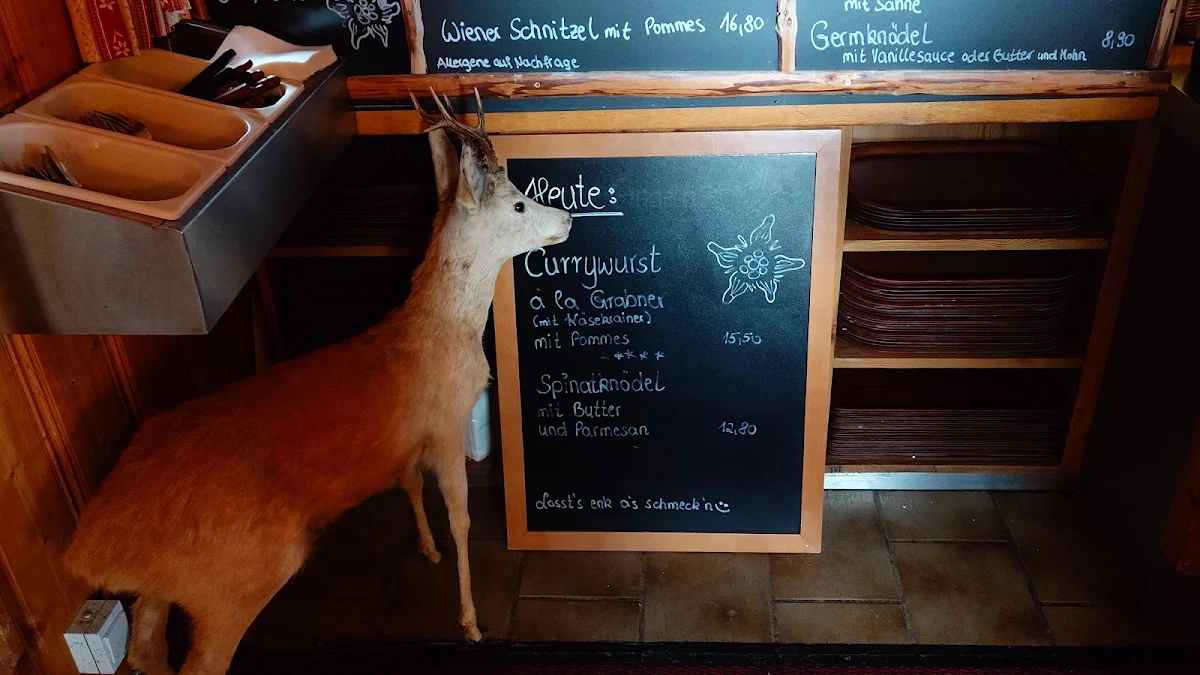 Wiener Schnitzel mit Pommes 16,80
Allergene auf Nachfrage
mit Sahne
Germknödel 8,90
mit Vanillesauce oder Butter und Mohn
Heute:
Currywurst
à la Grabner
(mit Käsekrainer)
mit Pommes 15,50
****
Spinatknödel
mit Butter
und Parmesan 12,80
Losst's enk a's schmeck'n